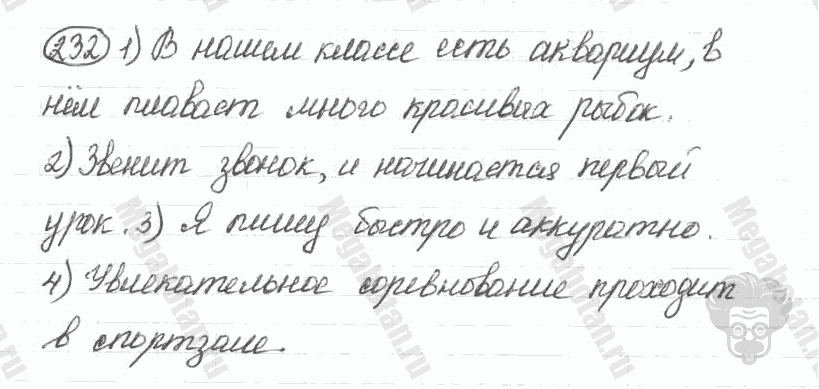 232 1) В нашем классе есть аквариум, в
нём плавает много красивых рыбок.
2) Звенит звонок, и начинается первый
урок. 3) Я пишу быстро и аккуратно.
4) Увлекательное соревнование проходит
в спортзале.
Megabotan.ru